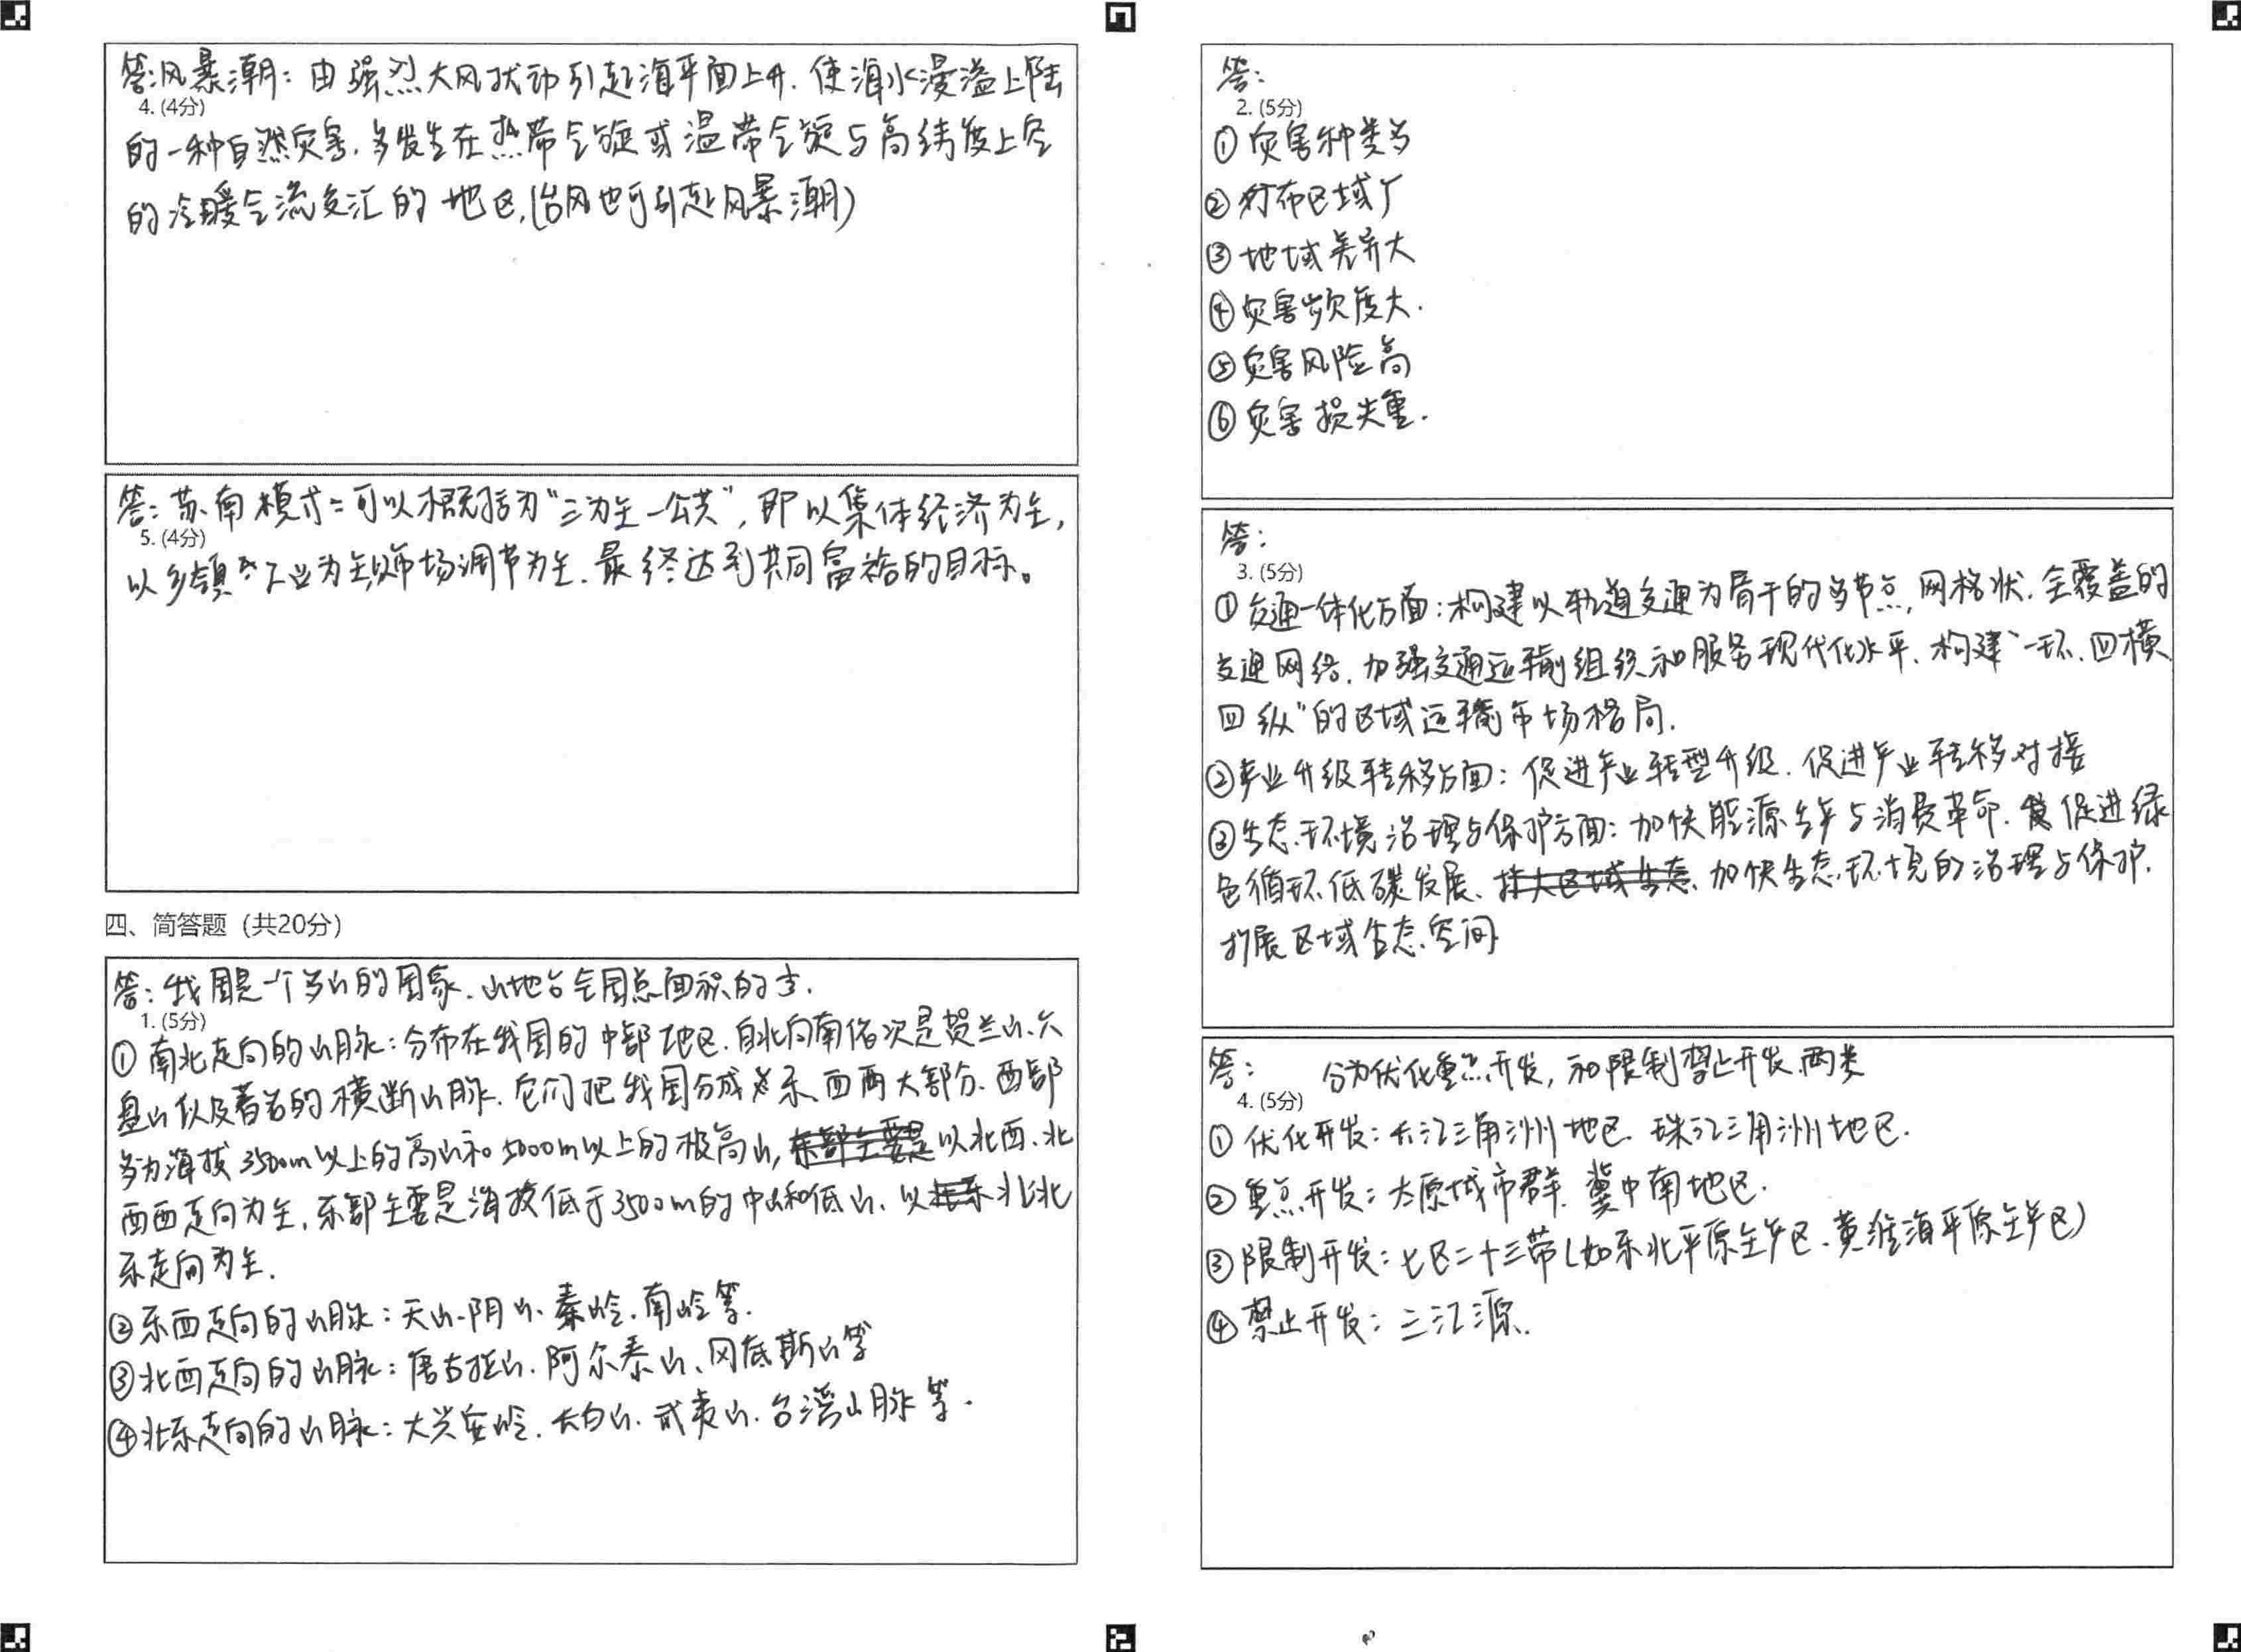 答:风暴潮：由强烈大风扰动引起海平面上升.使海水漫溢上陆
4. (4分)
的一种自然灾害.多发生在热带气旋或温带气旋与高纬度上空
的冷暖气流交汇的地区.(台风也可引起风暴潮)
答：苏南模式：可以概括为“三为主一公共”，即以集体经济为主，
5. (4分)
以乡镇企业为主,以市场调节为主.最终达到共同富裕的目标。
四、简答题（共20分）
答：我国是一个多山的国家.山地占全国总面积的
1. (5分)
① 南北走向的山脉：分布在我国的中部地区.自北向南依次是贺兰山、六
盘山以及著名的横断山脉.它们把我国分成东、西两大部分.西部
多为海拔3500m以上的高山和5000m以上的极高山,以北西、北
西西走向为主.东部主要是海拔低于3500m的中山和低山、以北北
东走向为主.
②东西走向的山脉：天山、阴山、秦岭、南岭等.
③北西走向的山脉：唐古拉山、阿尔泰山、冈底斯山等
④北东走向的山脉：大兴安岭、长白山、武夷山、台湾山脉等.
答：
2. (5分)
① 灾害种类多
② 分布区域广
③ 地域差异大
④ 灾害频度大.
⑤ 灾害风险高
⑥ 灾害损失重.
答：
3. (5分)
① 交通一体化方面：构建以轨道交通为骨干的多节点,网格状.全覆盖的
交通网络.加强交通运输组织和服务现代化水平.构建“一环、四横、
四纵”的区域运输市场格局.
②产业升级转移方面：促进产业转型升级.促进产业转移对接
③生态环境治理与保护方面：加快能源生产与消费革命.促进绿
色循环低碳发展、加快生态环境的治理与保护.
扩展区域生态空间
答： 分为优化重点开发，和限制禁止开发.两类
4. (5分)
① 优化开发：长江三角洲地区.珠江三角洲地区.
② 重点开发：太原城市群.冀中南地区.
③ 限制开发：七区二十三带(如东北平原主产区、黄淮海平原主产区)
④ 禁止开发：三江源.